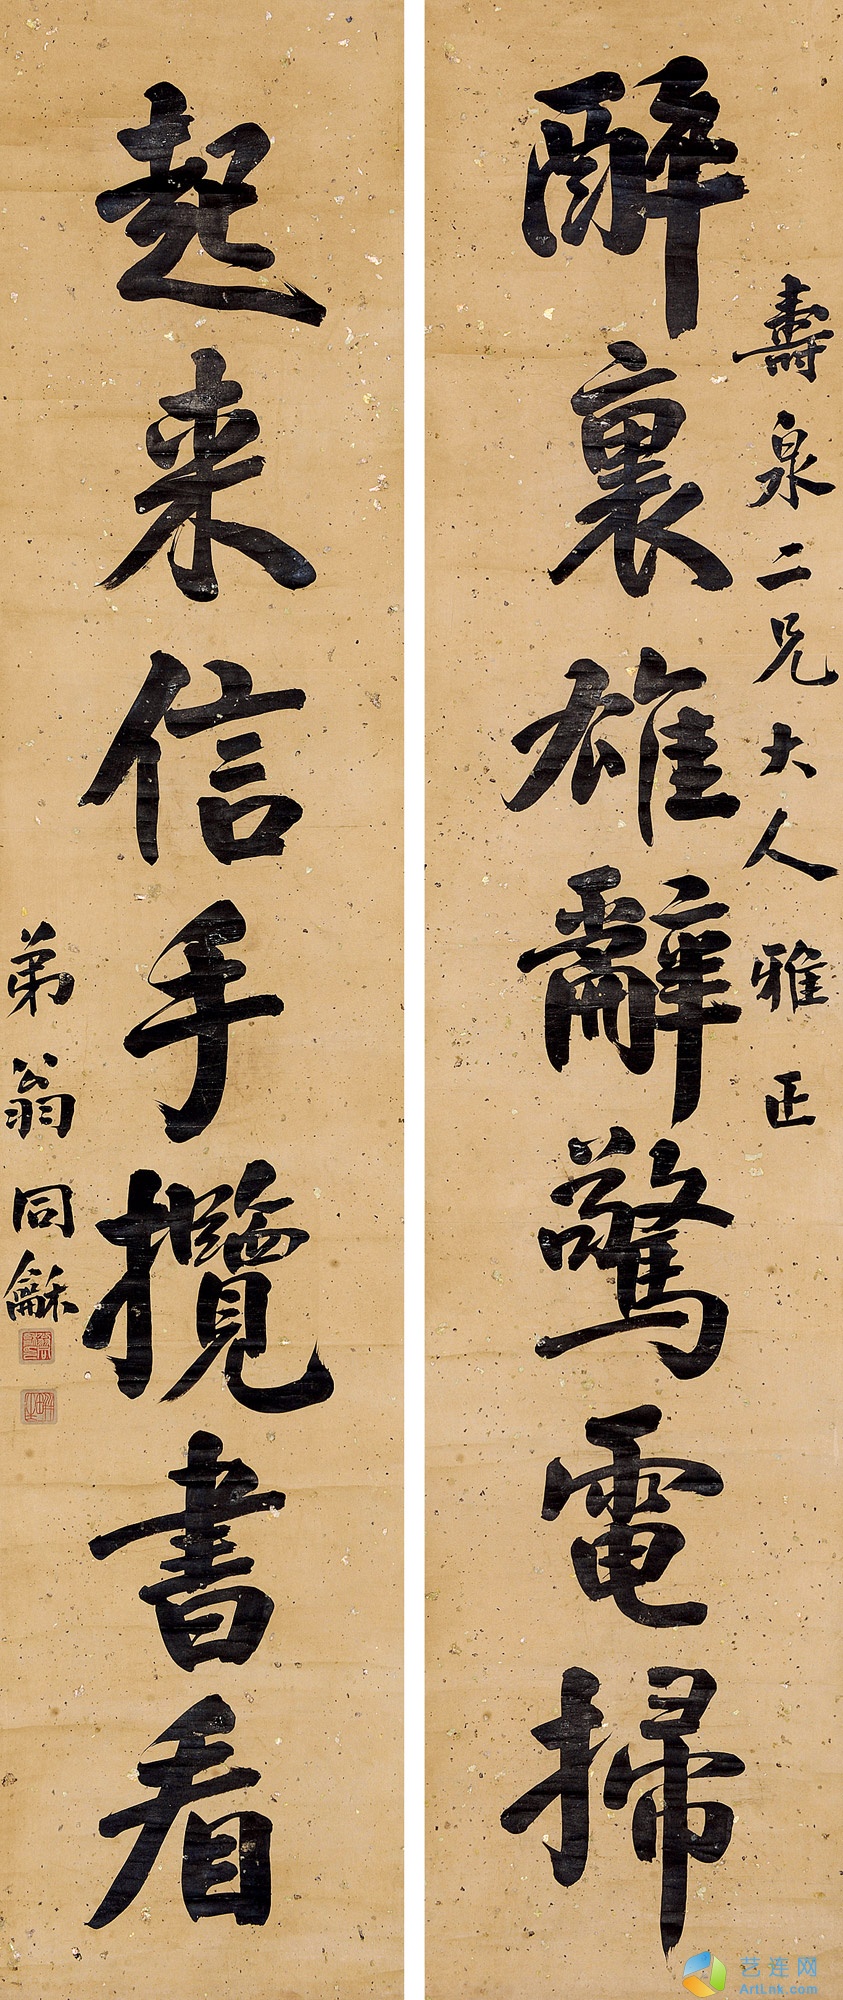 壽泉二兄大人雅正
醉裏雄辭驚電掃
起来信手攬書看
弟翁同龢
艺连网
ArtLnk.com